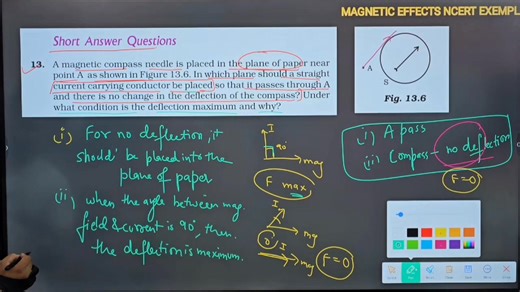 MAGNETIC EFFECTS NCERT EXEMPL
Short Answer Questions
13. A magnetic compass needle is placed in the plane of paper near
point A as shown in Figure 13.6. In which plane should a straight
current carrying conductor be placed so that it passes through A
and there is no change in the deflection of the compass? Under
what condition is the deflection maximum and why?
A
S
Fig. 13.6
(i) For no deflection, it
should be placed into the
plane of paper
(ii) when the angle between mag.
field & current is 90°, then
the deflection is maximum.
I
90°
mag
F max.
I
mg
I
mg
F=0
i) A pass
(ii) Compass - no deflection
F=0